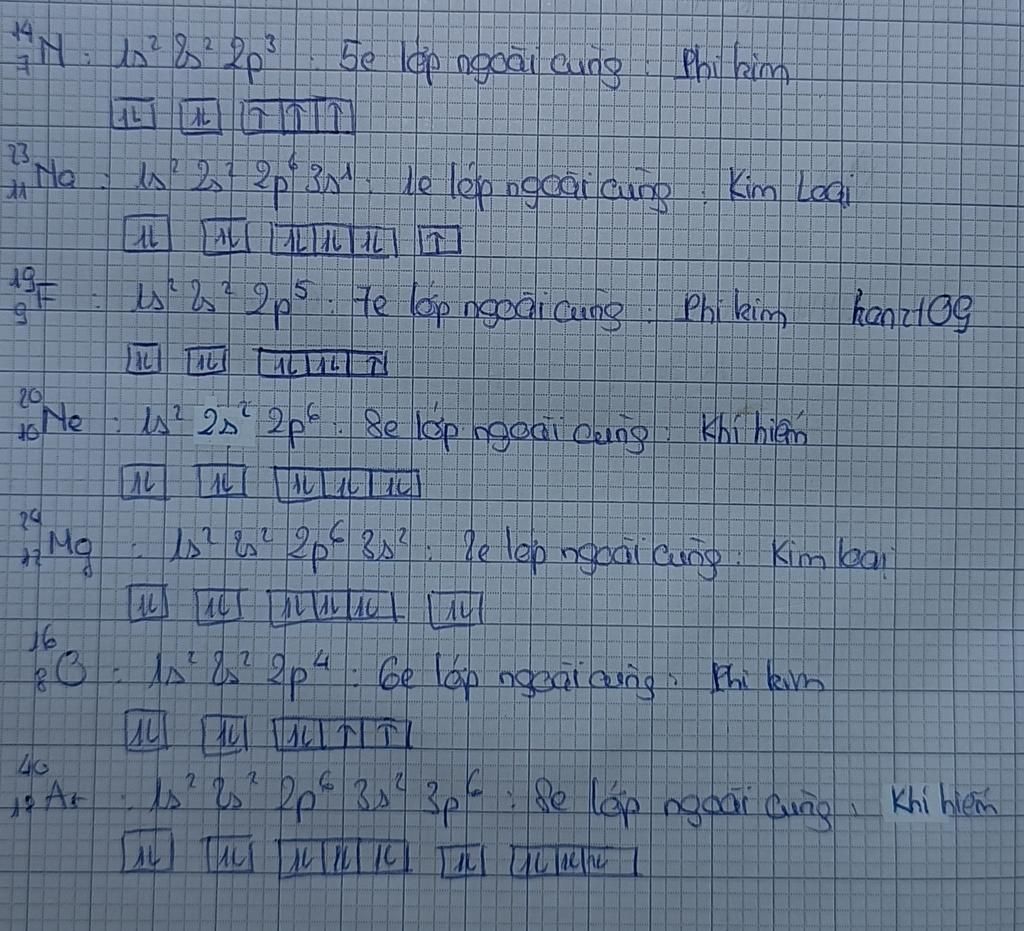 ¹⁴₇N : 1s² 2s² 2p³ : 5e lớp ngoài cùng : Phi kim
↑↓ ↑↓ ↑ ↑ ↑
²³₁₁Na : 1s² 2s² 2p⁶ 3s¹ : 1e lớp ngoài cùng : Kim Loại
↑↓ ↑↓ ↑↓ ↑↓ ↑↓ ↑
¹⁹₉F : 1s² 2s² 2p⁵ : 7e lớp ngoài cùng : Phi kim hanzt09
↑↓ ↑↓ ↑↓ ↑↓ ↑
²⁰₁₀Ne : 1s² 2s² 2p⁶ : 8e lớp ngoài cùng : Khí hiếm
↑↓ ↑↓ ↑↓ ↑↓ ↑↓
²⁴₁₂Mg : 1s² 2s² 2p⁶ 3s² : 2e lớp ngoài cùng : Kim loại
↑↓ ↑↓ ↑↓ ↑↓ ↑↓ ↑↓
¹⁶₈O : 1s² 2s² 2p⁴ : 6e lớp ngoài cùng : Phi kim
↑↓ ↑↓ ↑↓ ↑ ↑
⁴⁰₁₈Ar : 1s² 2s² 2p⁶ 3s² 3p⁶ : 8e lớp ngoài cùng : Khí hiếm
↑↓ ↑↓ ↑↓ ↑↓ ↑↓ ↑↓ ↑↓ ↑↓ ↑↓